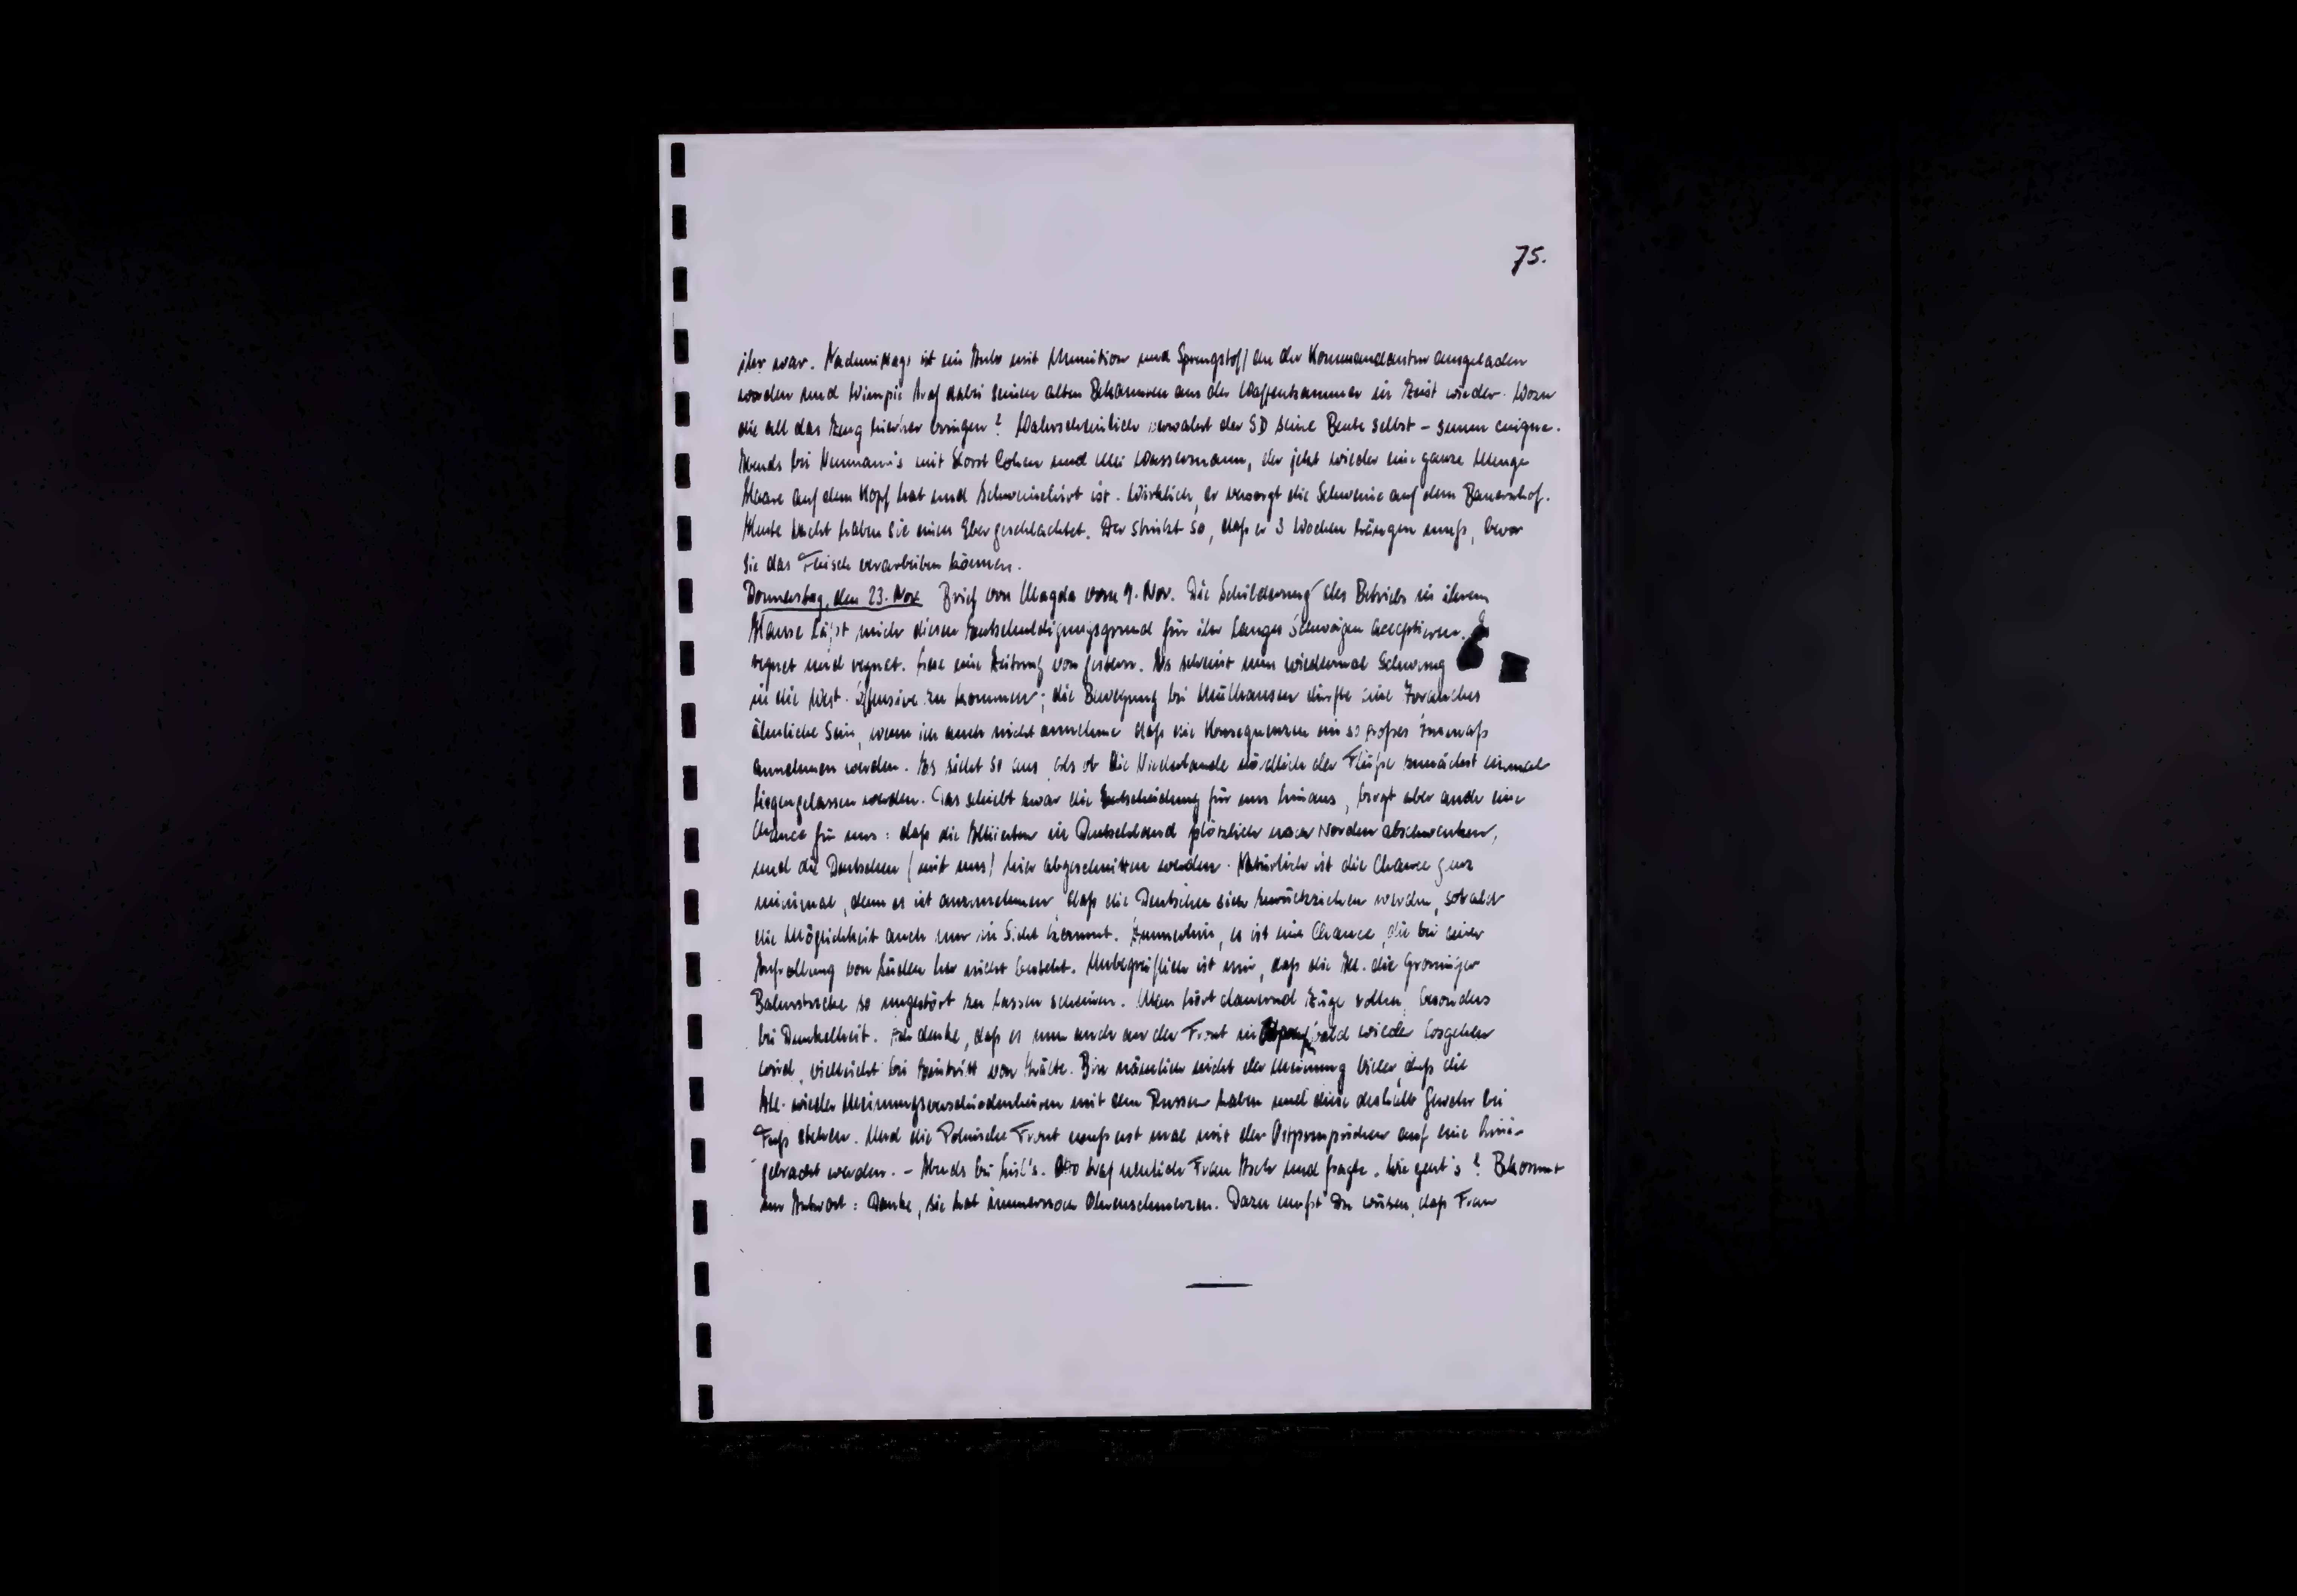 75.
ihr war. Nachmittags ist ein Auto mit Munition und Sprengstoff an der Kommandantur ausgeladen
worden und Wimpie traf dabei seinen alten Bekannten aus der Waffenkammer in Zeist wieder. Wozu
die all das Zeug hierher bringen? Wahrscheinlich verwahrt der SD seine Beute selbst –
Abends bei Neumann's mit Horst Cohen und Uli Wassermann, der jetzt wieder eine ganze Menge
Haare auf dem Kopf hat und Schweinehirt ist. Wirklich, er versorgt die Schweine auf dem Bauernhof.
Heute Nacht haben sie einen Eber geschlachtet. Der stinkt so, daß er 3 Wochen hängen muß, bevor
sie das Fleisch verarbeiten können.
Donnerstag, den 23. Nov. Brief von Magda vom 9. Nov. Die Schilderung des Betriebs in ihrem
Hause läßt mich diesen Entschuldigungsgrund für ihr langes Schweigen acceptieren. Es
regnet und regnet. Lese eine Zeitung von gestern. Es scheint nun wiedermal Schwung
in die West-Offensive zu kommen; die Bewegung bei Mülhausen dürfte eine Avranches
ähnliche sein, wenn ich auch nicht annehme daß die Konsequenzen ein so großes Ausmaß
annehmen werden. Es sieht so aus, als ob die Niederlande nördlich der Flüße zunächst einmal
liegengelassen werden. Das schiebt zwar die Entscheidung für uns hinaus, birgt aber auch eine
Chance für uns: daß die Alliierten in Deutschland plötzlich nach Norden abschwenken,
und die Deutschen (mit uns) hier abgeschnitten werden. Natürlich ist die Chance ganz
minimal, denn es ist anzunehmen, daß die Deutschen sich zurückziehen werden, sobald
die Möglichkeit auch nur in Sicht kommt. Immerhin, es ist eine Chance, die bei einer
Aufrollung von Süden her nicht besteht. Unbegreiflich ist mir, daß die All. die Groninger
Bahnstrecke so ungestört zu lassen scheinen. Man hört dauernd Züge rollen, besonders
bei Dunkelheit. Ich denke, daß es nun auch an der Front in bald wieder losgehen
wird, vielleicht bei Eintritt von Kälte. Bin nämlich nicht der Meinung vieler, daß die
All. wieder Meinungsverschiedenheiten mit den Russen haben und diese deshalb Gewehr bei
Fuß stehen. Und die Polnische Front muß erst mal mit der Ostpreußischen auf eine Linie
gebracht werden. – Abends bei Otto traf neulich Frau Asch und fragte: Wie geht's? Bekommt
zur Antwort: Danke, sie hat immernoch Ohrenschmerzen. Dazu mußt Du wissen, daß Frau